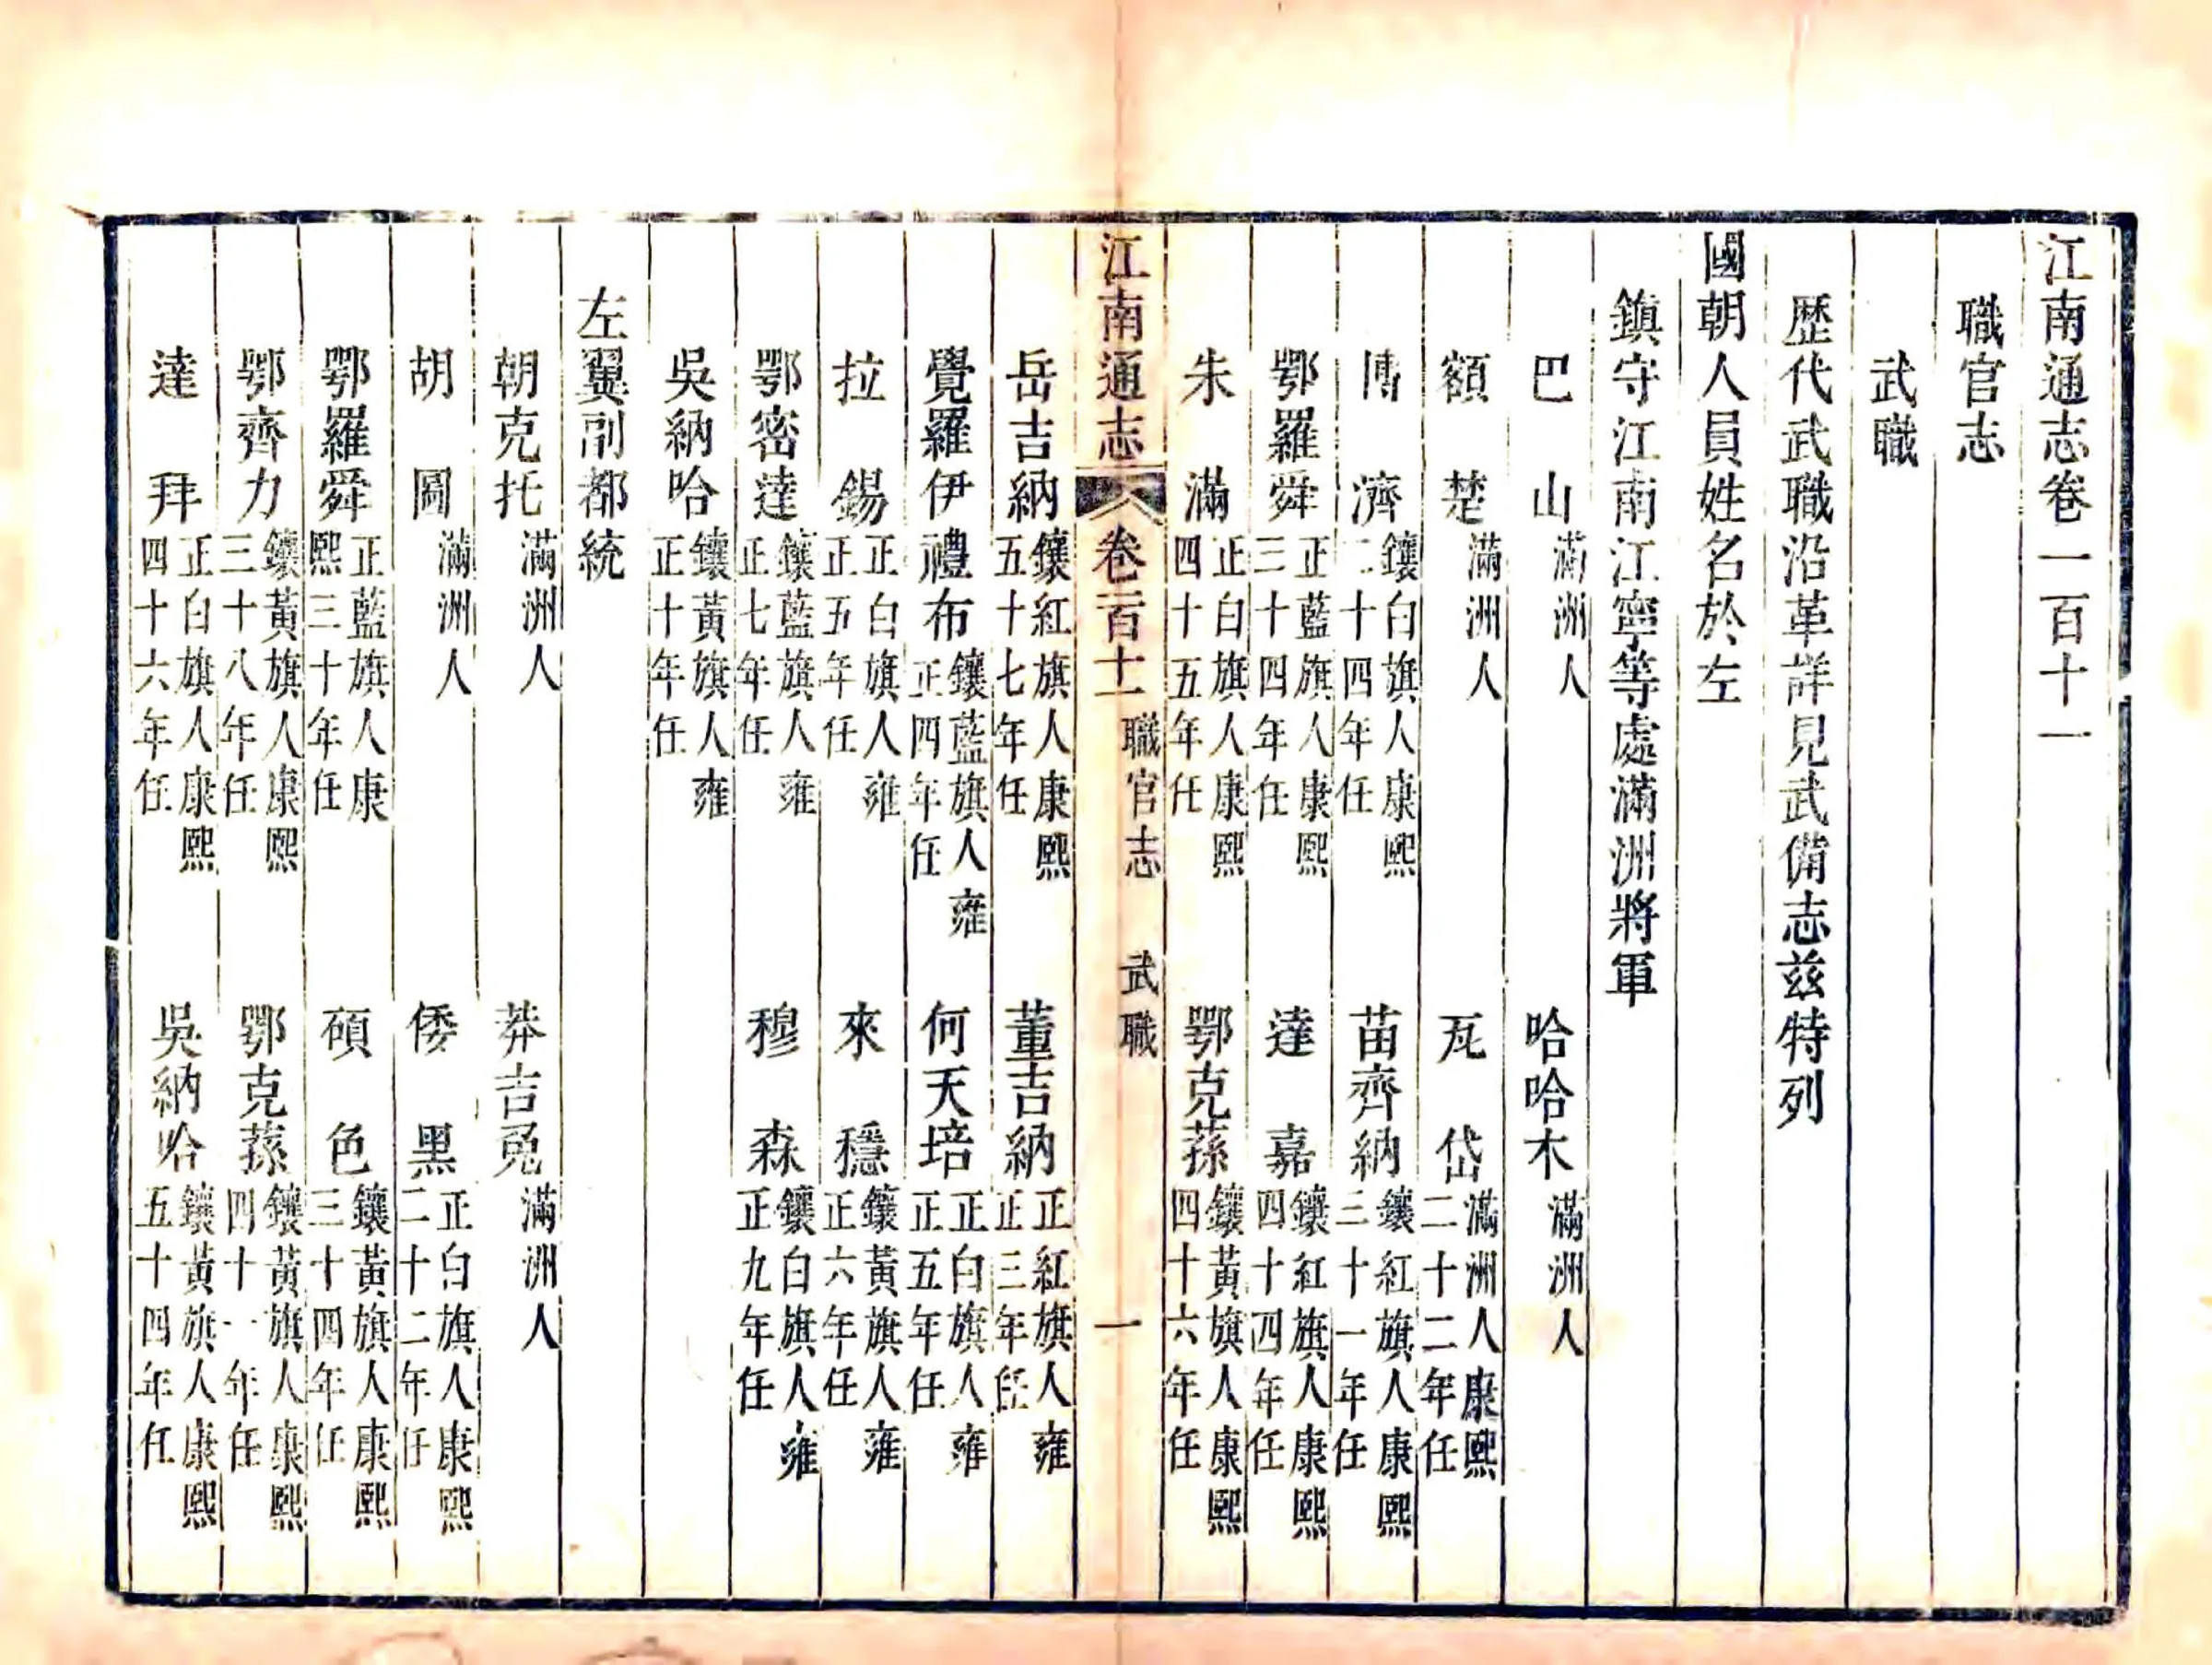 江南通志卷一百十一
職官志
武職
歷代武職沿革詳見武備志茲特列
國朝人員姓名於左
鎮守江南江寧等處滿洲將軍
巴山 滿洲人 哈哈木 滿洲人
額楚 滿洲人 瓦岱 滿洲人康熙二十二年任
博濟 鑲白旗人康熙二十四年任 苗齊納 鑲紅旗人康熙三十一年任
鄂羅舜 正藍旗人康熙三十四年任 達嘉 鑲紅旗人康熙四十四年任
朱滿 正白旗人康熙四十五年任 鄂克蓀 鑲黃旗人康熙四十六年任
江南通志 卷一百十一 職官志 武職 一
岳吉納 鑲紅旗人康熙五十七年任 董吉納 正紅旗人雍正三年任
覺羅伊禮布 鑲藍旗人雍正四年任 何天培 正白旗人雍正五年任
拉錫 正白旗人雍正五年任 來穩 鑲黃旗人雍正六年任
鄂密達 鑲藍旗人雍正七年任 穆森 鑲白旗人雍正九年任
吳納哈 鑲黃旗人雍正十年任
左翼副都統
朝克托 滿洲人 莽吉兔 滿洲人
胡圖 滿洲人 倭黑 正白旗人康熙二十二年任
鄂羅舜 正藍旗人康熙三十年任 碩色 鑲黃旗人康熙三十四年任
鄂齊力 鑲黃旗人康熙三十八年任 鄂克蓀 鑲黃旗人康熙四十一年任
達拜 正白旗人康熙四十六年任 吳納哈 鑲黃旗人康熙五十四年任